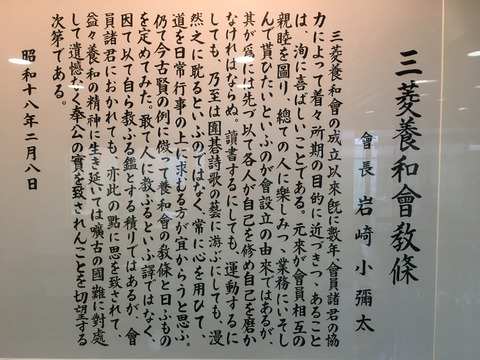 三菱養和會教條
會長 岩崎小彌太
三菱養和會の成立以來旣に數年、會員諸君の協
力によつて着々所期の目的に近づきつゝあること
は、洵に喜ばしいことである。元來が會員相互の
親睦を圖り、總ての人に樂しみつゝ業務にいそし
んで貰ひたい、といふのが會設立の由來ではあるが、
其が爲には先づ以て各人が自己を修め自己を磨か
なければならぬ。讀書するにしても、運動するに
しても、乃至は圍碁詩歌の藝に游ぶにしても、漫
然之に耽るといふのではなく、常に心を用ひて、
道を日常行事の上に求むる方が宜からうと思ふ。
仍て今古賢の例に倣つて養和會の教條と曰ふもの
を定めてみた。敢て人に教ふるといふ譯ではなく、
因て以て自ら教ふる鑑とする積りではあるが、會
員諸君におかれても、亦此の點に思を致されて、
益々養和の精神に生き延いては曠古の國難に對處
して遺憾なく奉公の實を致されんことを切望する
次第である。
昭和十八年二月八日